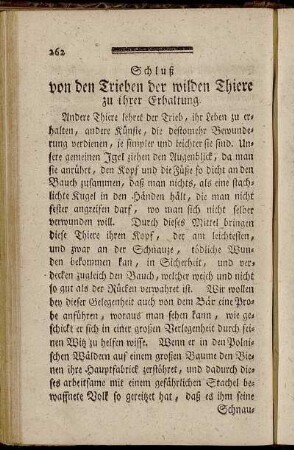 262
Schluß
von den Trieben der wilden Thiere
zu ihrer Erhaltung.
Andere Thiere lehret der Trieb, ihr Leben zu er-
halten, andere Künste, die destomehr Bewunde-
rung verdienen, je simpler und leichter sie sind. Un-
sere gemeinen Igel ziehen den Augenblick, da man
sie anrührt, den Kopf und die Füße so dicht an den
Bauch zusammen, daß man nichts, als eine stach-
lichte Kugel in den Händen hält, die man nicht
fester angreifen darf, wo man sich nicht selber
verwunden will. Durch dieses Mittel bringen
diese Thiere ihren Kopf, der am leichtesten,
und zwar an der Schnauze, tödliche Wun-
den bekommen kan, in Sicherheit, und ver-
decken zugleich den Bauch, welcher weich und nicht
so gut als der Rücken verwahret ist. Wir wollen
bey dieser Gelegenheit auch von dem Bär eine Pro-
be anführen, woraus man sehen kann, wie ge-
schickt er sich in einer großen Verlegenheit durch sei-
nen Witz zu helfen wisse. Wenn er in den Polni-
schen Wäldern auf einem großen Baume den Bie-
nen ihre Hauptfabrick zerstöhret, und dadurch die-
ses arbeitsame mit einem gefährlichen Stachel be-
waffnete Volk so gereitzet hat, daß es ihm seine
Schnau-